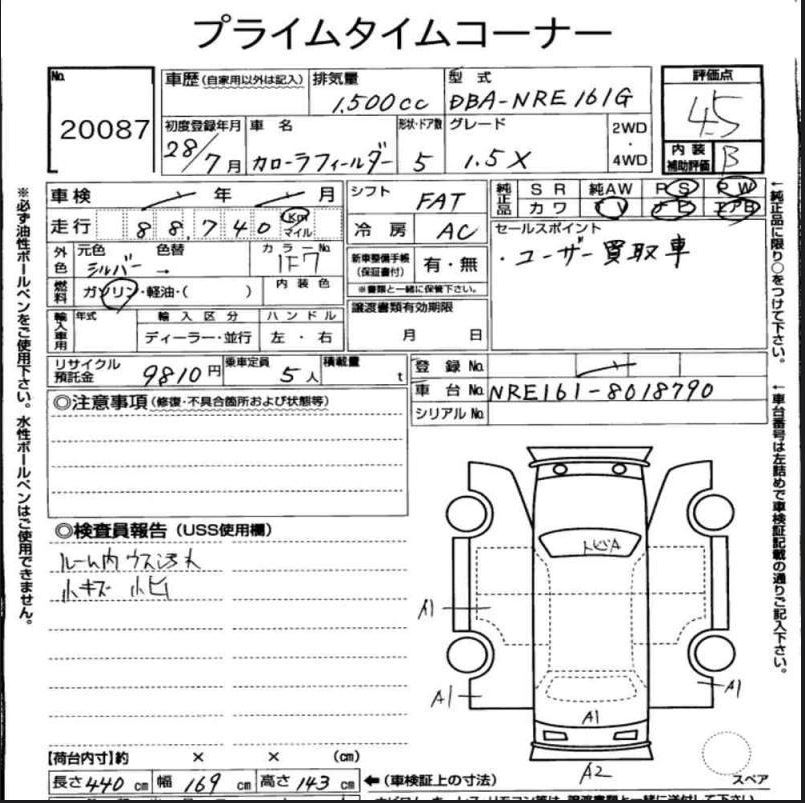 プライムタイムコーナー
No.
20087
車歴(自家用以外は記入)
排気量
1,500cc
型式
DBA-NRE161G
評価点
4.5
初度登録年月
28/7月
車名
カローラフィールダー
形状・ドア数
5
グレード
1.5X
2WD
・
4WD
内装
補助評価
B
車検
年
月
走行
88,740
Km
マイル
シフト
FAT
冷房
AC
純正品
SR
純AW
PS
PW
カワ
TV
ナビ
エアB
セールスポイント
・ユーザー買取車
外色
元色
シルバー
色替
→
カラーNo.
1F7
燃料
ガソリン・軽油・(　　)
内装色
新車整備手帳
(保証書付)
有・無
※書類と一緒に保管下さい。
輸入車用
年式
輸入区分
ディーラー・並行
ハンドル
左・右
譲渡書類有効期限
月　　日
リサイクル
預託金
9810円
乗車定員
5人
積載量
t
登録No.
車台No.
NRE161-8018790
シリアルNo.
◎注意事項(修復・不具合箇所および状態等)
◎検査員報告(USS使用欄)
ルーム内ウス汚れ
小キズ 小ヒ
トビA
A1
A1
A1
A1
A2
スペア
【荷台内寸】約　×　×　(cm)
長さ440cm
幅169cm
高さ143cm
←(車検証上の寸法)
※必ず油性ボールペンをご使用下さい。水性ボールペンはご使用できません。
←純正品に限り○をつけて下さい。
←車台番号は左詰めで車検証記載の通りご記入下さい。